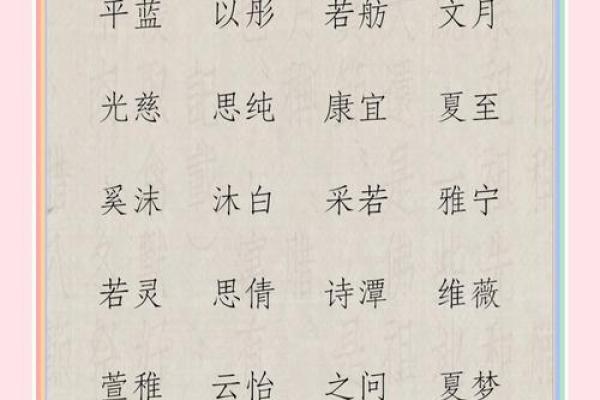 平蓝 以彤 若舫 文月
光慈 思纯 康宜 夏至
奚沫 沐白 采若 雅宁
若灵 思倩 诗潭 维薇
萱稚 云怡 之问 夏梦